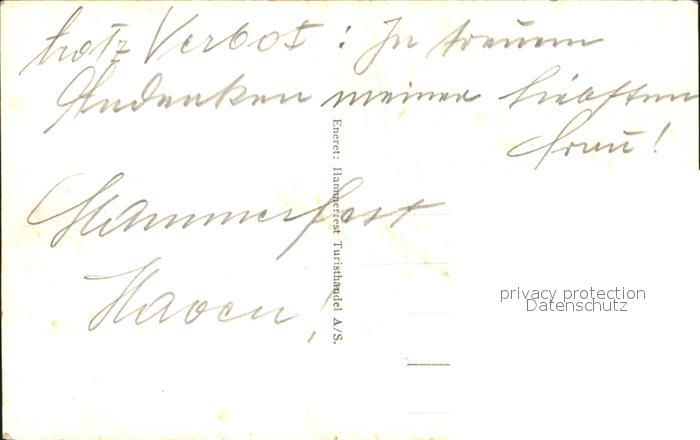 trotz Verbot : In treuem
Andenken meiner liebsten
Frau!
Hammerfest
Havn!
Eneret: Hammerfest Turisthandel A/S.
privacy protection
Datenschutz